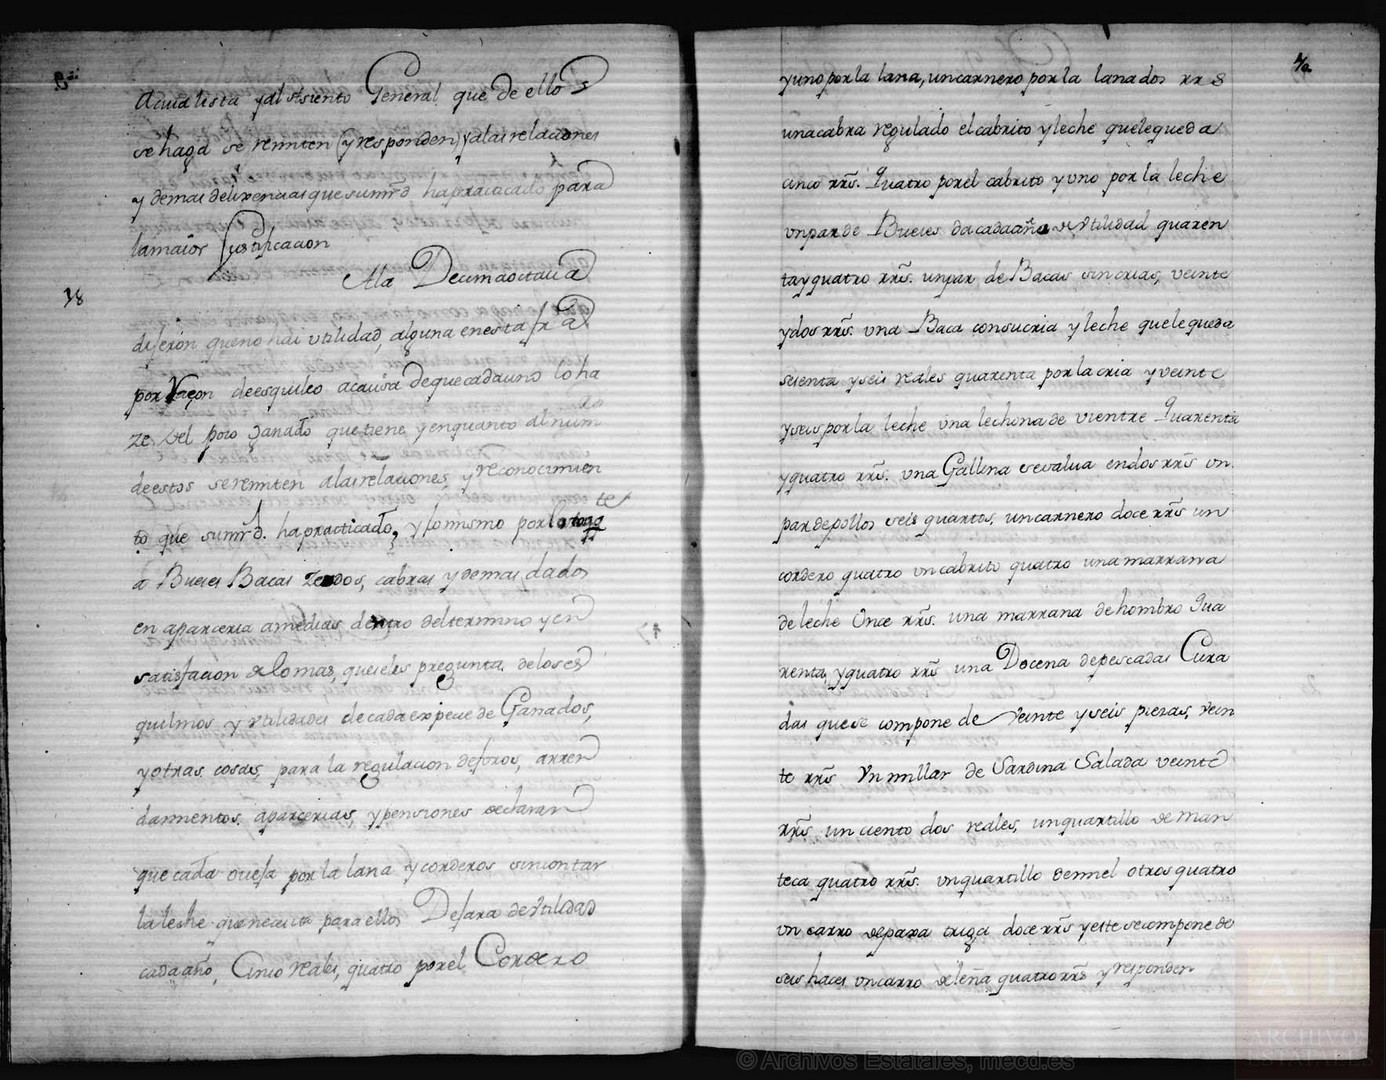 acuia lista y al Asiento General que de ello
se haga se remiten (y responden) y a las relaciones
y demas delixencias que sumrd. ha practicado para
la maior Justificacion
18
A la Decimaoctava
dijeron que no hai utilidad alguna en esta fra
por Raçon de esquileo a causa de que cada uno lo ha
ze del poco Ganado que tiene y en quanto al num
de estos se remiten a las relaciones y reconocimien
to que sumrd. ha practicado, y lo mismo por lo to
te
a Bueies Bacas Zerdos, cabras y demas dados
en aparceria a medias dentro del termino y en
satisfacion de lo mas, que se les pregunta de los es
quilmos y utilidades de cada expecie de Ganados,
y otras cosas, para la regulacion de foros, arren
damientos, aparcerias y pensiones declaran
que cada oveja por la lana y corderos sin contar
la leche que necicita para ellos Dejara de Utilidad
cada año, Cinco reales, quatro por el Cordero
y uno por la lana, un carnero por la lana dos rrs
una cabra regulado el cabrito y leche que le queda
cinco rrs. Quatro por el cabrito y uno por la leche
un par de Bueies da cada año de Utilidad quaren
ta y quatro rrs. un par de Bacas sin crias, veinte
y dos rrs. una Baca con su cria y leche que le queda
sesenta y seis reales quarenta por la cria y veinte
y seis por la leche una lechona de vientre Quarenta
y quatro rrs. una Gallina se evalua en dos rrs un
par de pollos seis quartos, un carnero doce rrs un
cordero quatro un cabrito quatro una marrana
de leche Once rrs. una marrana de hombro Qua
renta y quatro rrs una Docena de pescadas Cura
das que se compone de veinte y seis piezas, vein
te rrs Un millar de Sardina Salada veinte
rrs un ciento dos reales, un quartillo de man
teca quatro rrs. un quartillo de miel otros quatro
un carro de paxa triga doce rrs y este se compone de
seis haces un carro de leña quatro rrs y responden
© Archivos Estatales, mecd.es
ARCHIVOS
ESTATALES